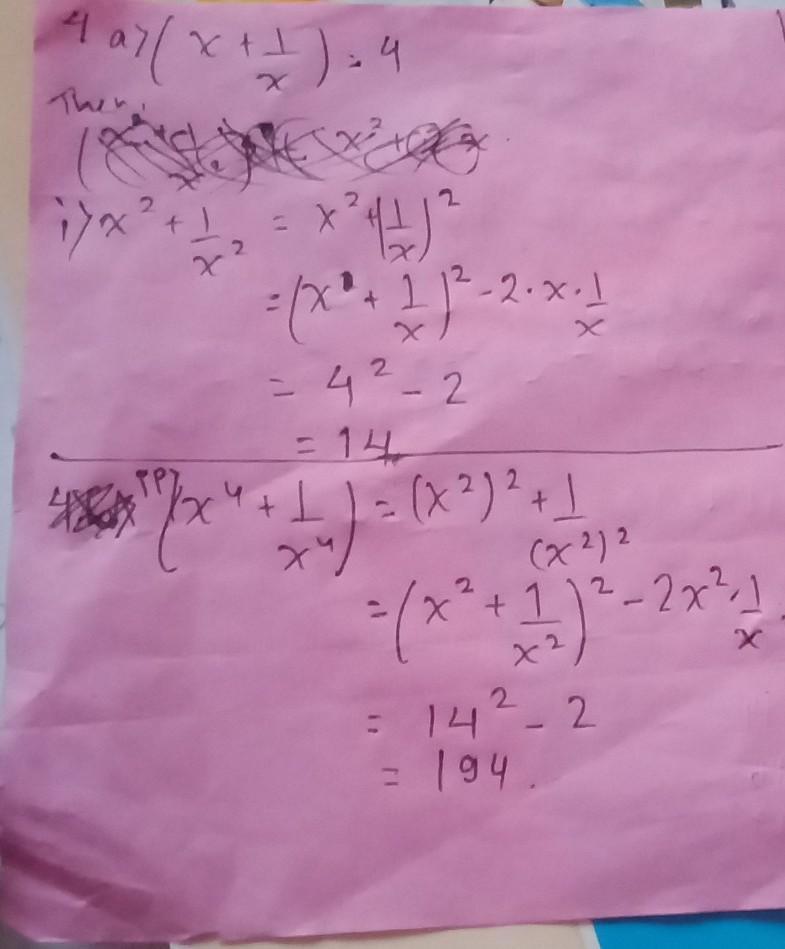 4 a) (x + 1/x) = 4
Then,
i) x² + 1/x² = x² + (1/x)²
= (x + 1/x)² - 2·x·1/x
= 4² - 2
= 14
ii) (x⁴ + 1/x⁴) = (x²)² + 1/(x²)²
= (x² + 1/x²)² - 2x²·1/x
= 14² - 2
= 194.